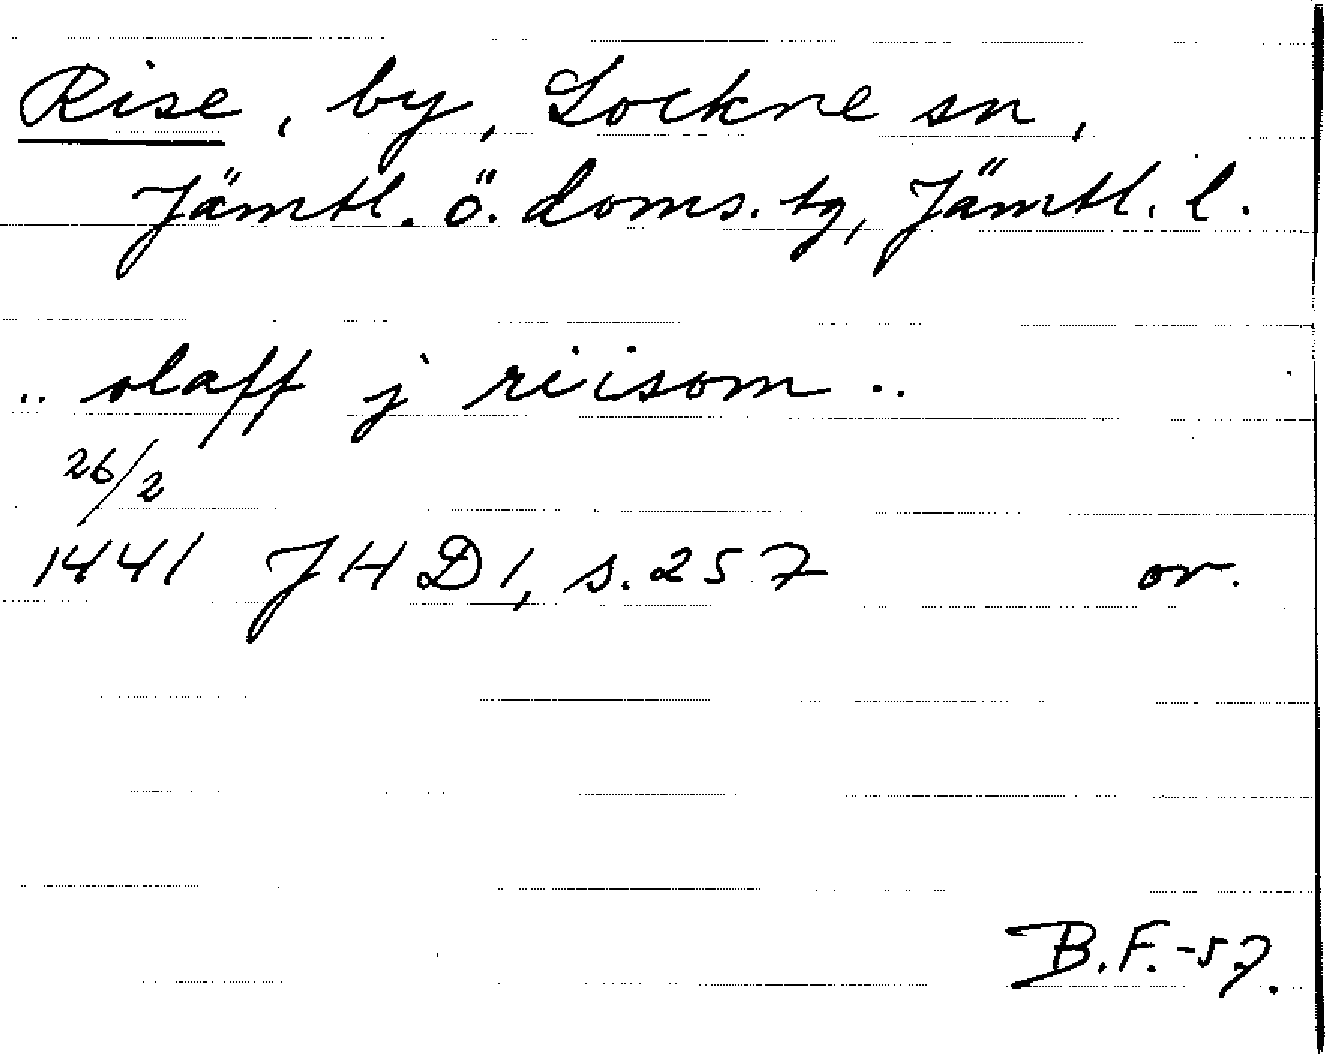 Rise, by, Lockne sn,
Jämtl. ö. doms. tg, Jämtl. l.
.. olaff j riisom ..
26/2
1441 JHD 1, s. 257 or.
B.F. -57.